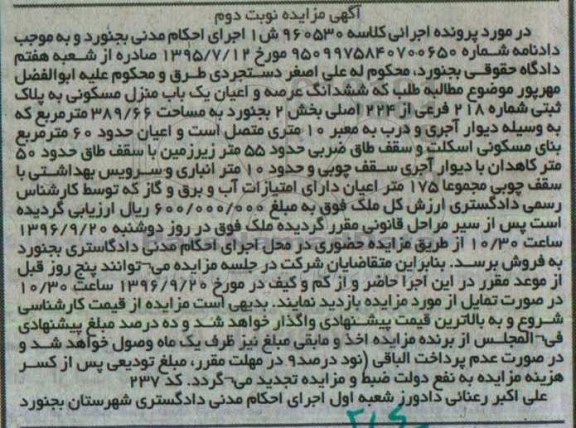 آگهی مزایده نوبت دوم
در مورد پرونده اجرائی کلاسه ۹۶۰۵۳۰ ش۱ اجرای احکام مدنی بجنورد و به موجب
دادنامه شماره ۹۵۰۹۹۷۵۸۴۰۷۰۰۶۵۰ مورخ ۱۳۹۵/۷/۱۲ صادره از شعبه هفتم
دادگاه حقوقی بجنورد، محکوم له علی اصغر دستجردی طرق و محکوم علیه ابوالفضل
مهرپور موضوع مطالبه طلب که ششدانگ عرصه و اعیان یک باب منزل مسکونی به پلاک
ثبتی شماره ۲۱۸ فرعی از ۲۲۴ اصلی بخش ۲ بجنورد به مساحت ۳۸۹/۶۶ مترمربع که
به وسیله دیوار آجری و درب به معبر ۱۰ متری متصل است و اعیان حدود ۶۰ مترمربع
بنای مسکونی اسکلت و سقف طاق ضربی حدود ۵۵ متر زیرزمین با سقف طاق حدود ۵۰
متر کاهدان با دیوار آجری سقف چوبی و حدود ۱۰ متر انباری و سرویس بهداشتی با
سقف چوبی مجموعا ۱۷۵ متر اعیان دارای امتیازات آب و برق و گاز که توسط کارشناس
رسمی دادگستری ارزش کل ملک فوق به مبلغ ۶۰۰/۰۰۰/۰۰۰ ریال ارزیابی گردیده
است پس از سیر مراحل قانونی مقرر گردیده ملک فوق در روز دوشنبه ۱۳۹۶/۹/۲۰
ساعت ۱۰/۳۰ از طریق مزایده حضوری در محل اجرای احکام مدنی دادگاستری بجنورد
به فروش برسد. بنابراین متقاضایان شرکت در جلسه مزایده می-توانند پنج روز قبل
از موعد مقرر در این اجرا حاضر و از کم و کیف در مورخ ۱۳۹۶/۹/۲۰ ساعت ۱۰/۳۰
در صورت تمایل از مورد مزایده بازدید نمایند. بدیهی است مزایده از قیمت کارشناسی
شروع و به بالاترین قیمت پیشنهادی واگذار خواهد شد و ده درصد مبلغ پیشنهادی
فی-المجلس از برنده مزایده اخذ و مابقی مبلغ نیز ظرف یک ماه وصول خواهد شد و
در صورت عدم پرداخت الباقی (نود درصد۹ در مهلت مقرر، مبلغ تودیعی پس از کسر
هزینه مزایده به نفع دولت ضبط و مزایده تجدید می-گردد. کد ۲۳۷
علی اکبر رعنائی دادورز شعبه اول اجرای احکام مدنی دادگستری شهرستان بجنورد